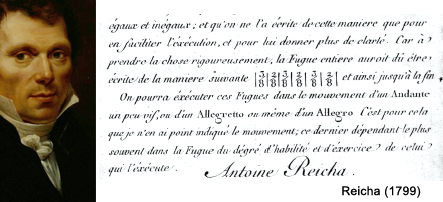 égaux et inégaux; et qu'on ne l'a écrite de cette maniere que pour
en faciliter l'éxécution, et pour lui donner plus de clarté. Car à
prendre la chose rigoureusement, la Fugue entiere auroit dû être
écrite de la maniere suivante |3/8|2/8|3/8|2/8|3/8|2/8| et ainsi jusqu'à la fin
On pourra éxécuter ces Fugues dans le mouvement d'un Andante
un peu vif, ou d'un Allegretto ou même d'un Allegro C'est pour cela
que je n'en ai point indiqué le mouvement; ce dernier dépendant le plus
souvent dans la Fugue du dégré d'habilité et d'éxercice de celui
qui l'éxécute. Antoine Reicha.
Reicha (1799)